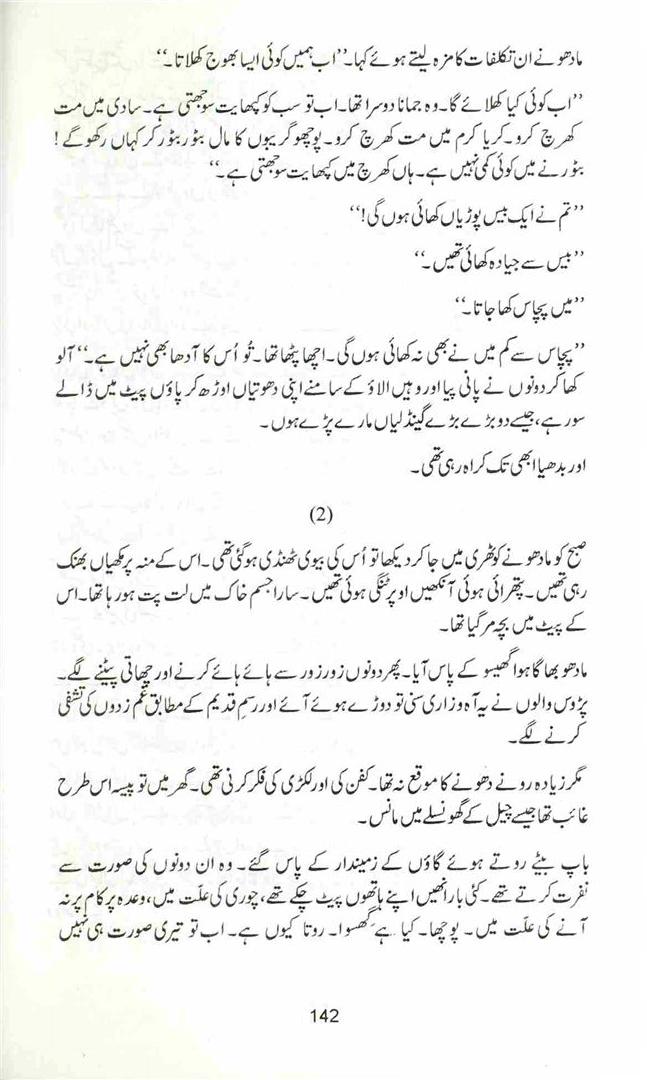 مادھو نے ان تکلفات کا مزہ لیتے ہوئے کہا۔ ’’اب ہمیں کوئی ایسا بھوج کھلاتا۔‘‘
’’اب کوئی کیا کھلائے گا۔ وہ جمانا دوسرا تھا۔ اب تو سب کو کپھایت سوجھتی ہے۔ سادی میں مت
کھرچ کرو۔ کریا کرم میں مت کھرچ کرو۔ پوچھو گریبوں کا مال بٹور بٹور کر کہاں رکھوگے!
بٹورنے میں کوئی کمی نہیں ہے۔ ہاں کھرچ میں کپھایت سوجھتی ہے۔‘‘
’’تم نے ایک بیس پوڑیاں کھائی ہوں گی!‘‘
’’بیس سے جیادہ کھائی تھیں۔‘‘
’’میں پچاس کھا جاتا۔‘‘
’’پچاس سے کم میں نے بھی نہ کھائی ہوں گی۔ اچھا پٹھا تھا۔ تُو اُس کا آدھا بھی نہیں ہے۔‘‘ آلو
کھا کر دونوں نے پانی پیا اور وہیں الاؤ کے سامنے اپنی دھوتیاں اوڑھ کر پاؤں پیٹ میں ڈالے
سو رہے، جیسے دو بڑے بڑے گینڈلیاں مارے پڑے ہوں۔
اور بدھیا ابھی تک کراہ رہی تھی۔
(2)
صبح کو مادھو نے کوٹھری میں جا کر دیکھا تو اُس کی بیوی ٹھنڈی ہوگئی تھی۔ اس کے منہ پر مکھیاں بھنک
رہی تھیں۔ پتھرائی ہوئی آنکھیں اوپر ٹنگی ہوئی تھیں۔ سارا جسم خاک میں لت پت ہو رہا تھا۔ اس
کے پیٹ میں بچہ مر گیا تھا۔
مادھو بھاگا ہوا گھیسو کے پاس آیا۔ پھر دونوں زور زور سے ہائے ہائے کرنے اور چھاتی پیٹنے لگے۔
پڑوس والوں نے یہ آہ و زاری سنی تو دوڑے ہوئے آئے اور رسمِ قدیم کے مطابق غم زدوں کی تشفی
کرنے لگے۔
مگر زیادہ رونے دھونے کا موقع نہ تھا۔ کفن کی اور لکڑی کی فکر کرنی تھی۔ گھر میں تو پیسہ اس طرح
غائب تھا جیسے چیل کے گھونسلے میں مانس۔
باپ بیٹے روتے ہوئے گاؤں کے زمیندار کے پاس گئے۔ وہ ان دونوں کی صورت سے
نفرت کرتے تھے۔ کئی بار انھیں اپنے ہاتھوں پیٹ چکے تھے، چوری کی علّت میں، وعدہ پر کام پر نہ
آنے کی علّت میں۔ پوچھا۔ کیا ہے گھسوا۔ روتا کیوں ہے۔ اب تو تیری صورت ہی نہیں
142